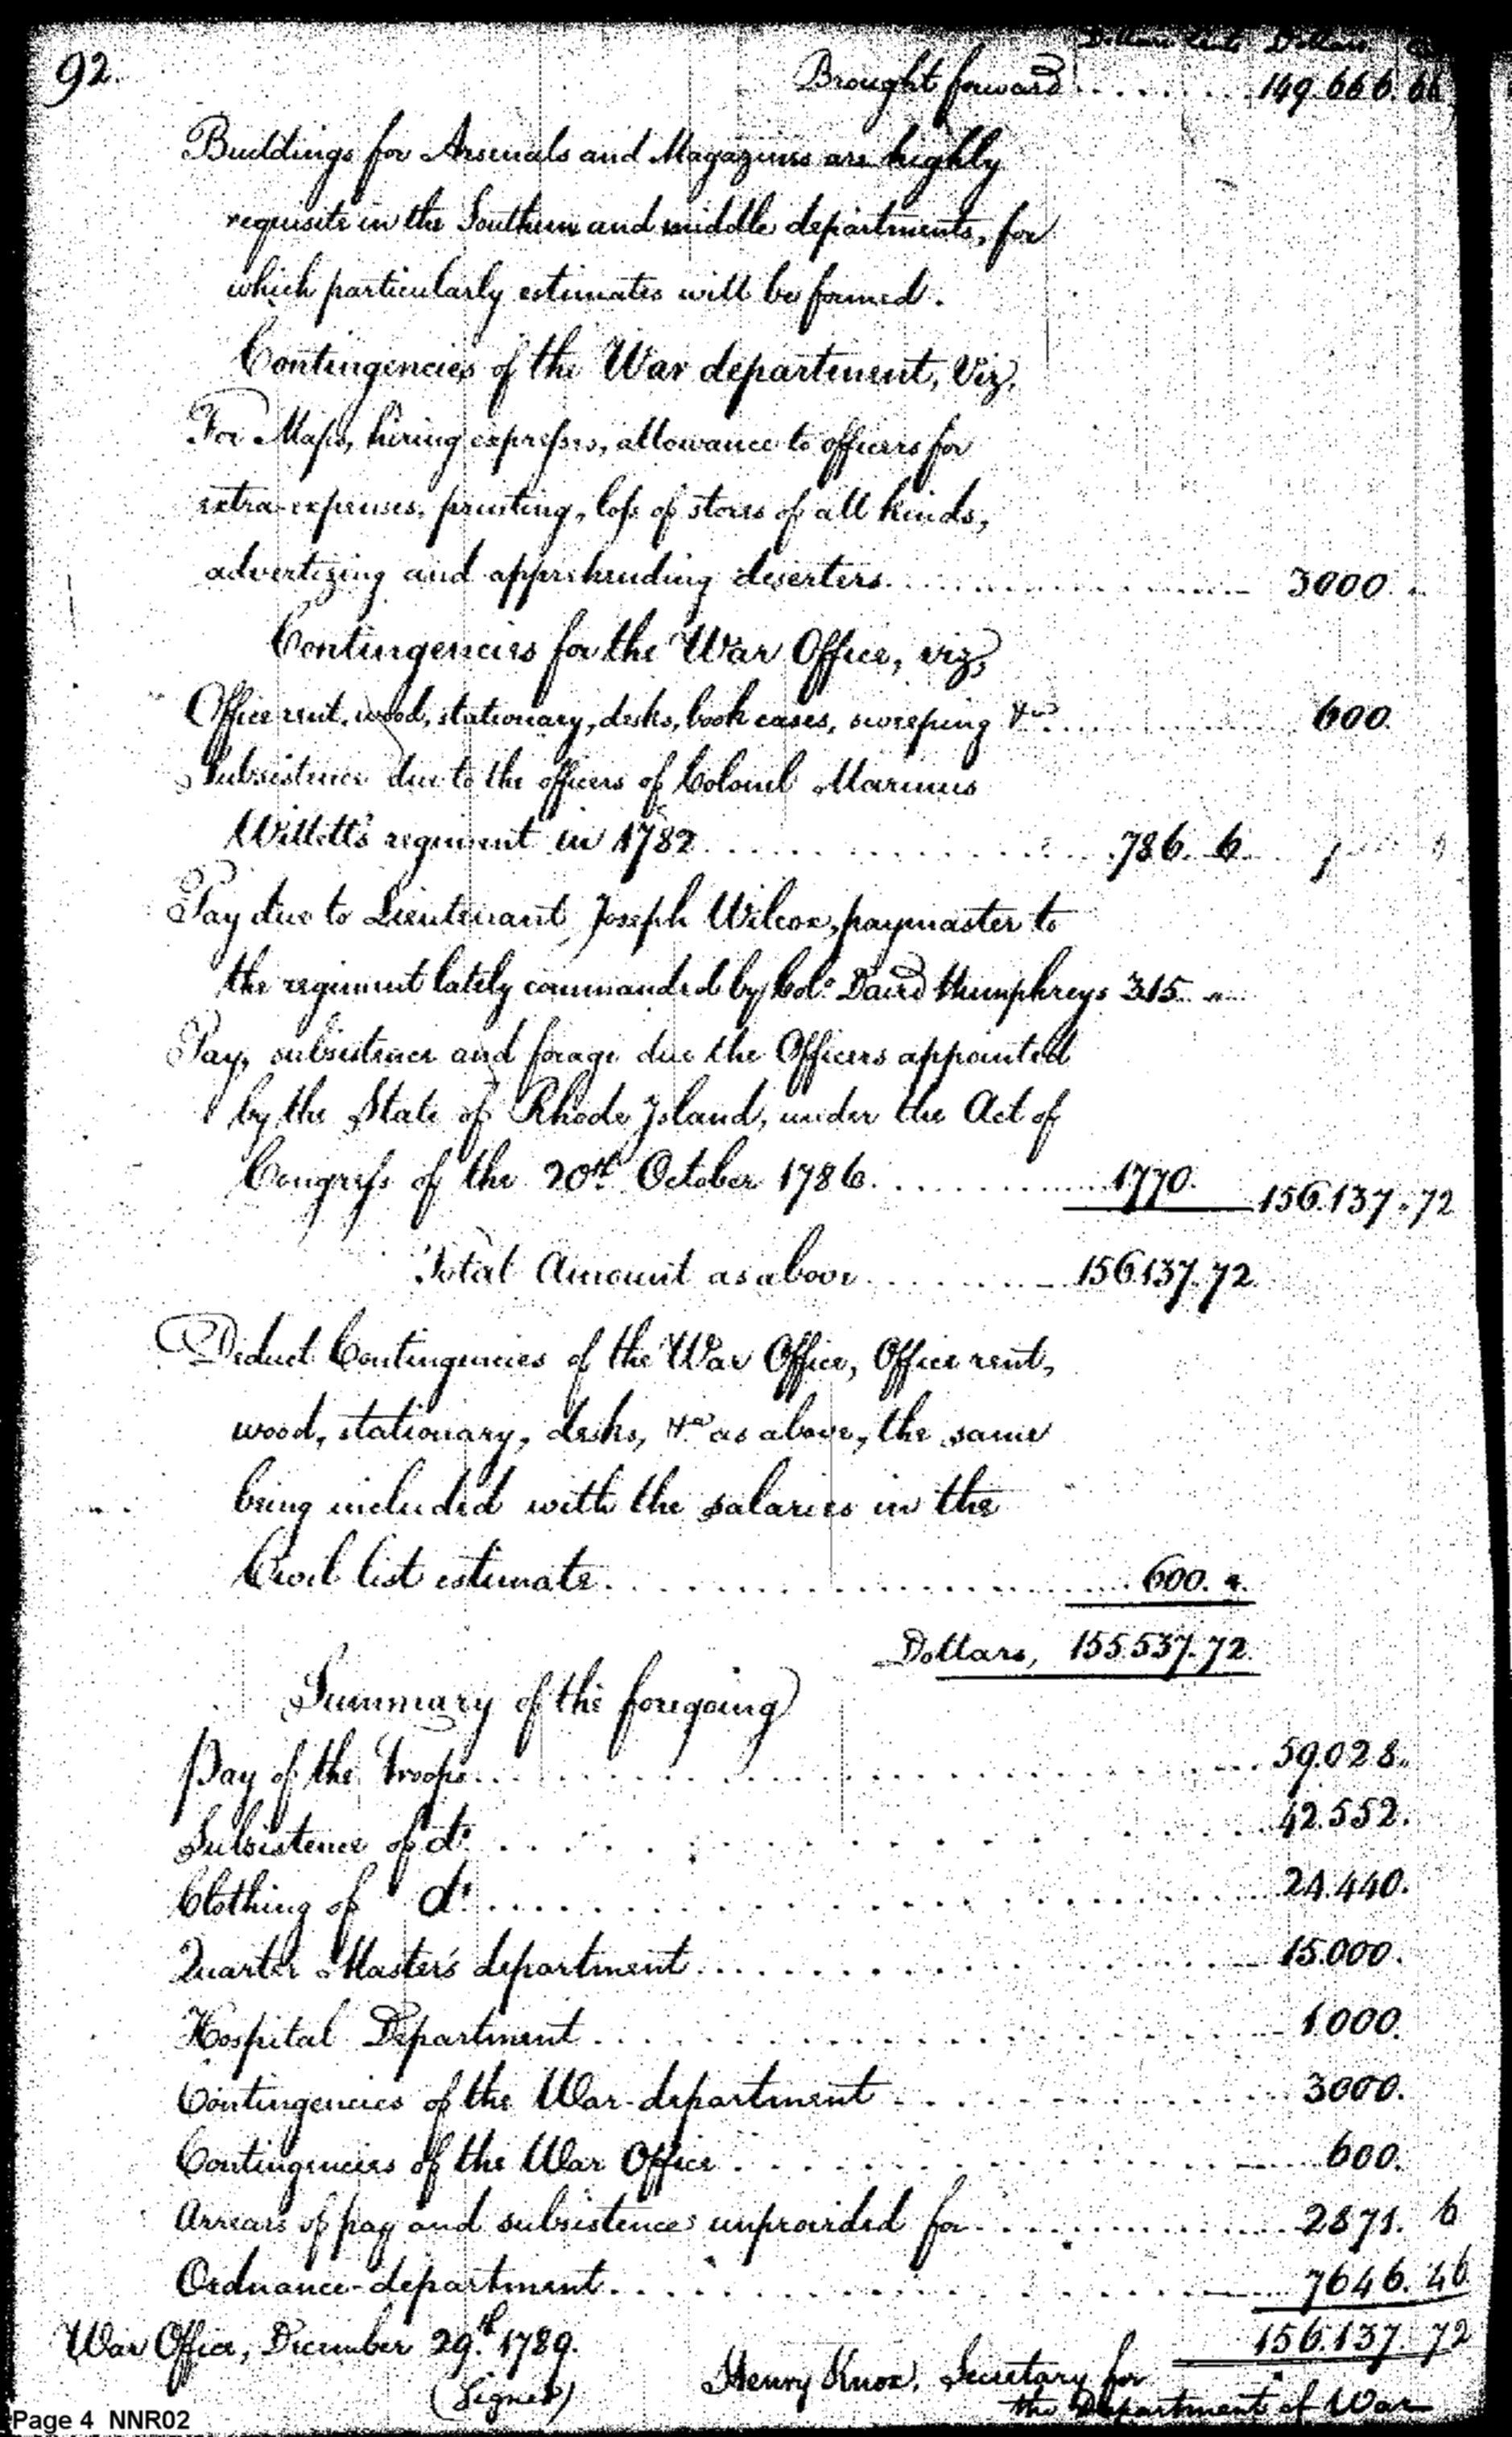 Dollars Cents Dollars
92. Brought forward ........ 149.666.66
Buildings for Arsenals and Magazines are highly
requisite in the Southern and middle departments, for
which particularly estimates will be formed.
Contingencies of the War department, Viz,
For Maps, hiring expresses, allowance to officers for
extra expenses, printing, loss of stores of all kinds,
advertizing and apprehending deserters. ........ 3000.
Contingencies for the War Office, viz,
Office rent, wood, stationary, desks, book cases, sweeping &ca ........ 600.
Subsistence due to the officers of Colonel Marinus
Willett's regiment in 1782 ........ 786. 6
Pay due to Lieutenant Joseph Wilcox, paymaster to
the regiment lately commanded by Colo. David Humphreys 315
Pay, subsistence and forage due the Officers appointed
by the State of Rhode Island, under the Act of
Congress of the 20th October 1786 ........ 1770. 156.137.72
Total Amount as above ........ 156.137.72
Deduct Contingencies of the War Office, Office rent,
wood, stationary, desks, &ca as above, the same
being included with the salaries in the
Civil list estimate ........ 600.
Dollars, 155.537.72
Summary of the foregoing
Pay of the troops ........ 59.028.
Subsistence of do. ........ 42.552.
Clothing of do. ........ 24.440.
Quarter Master's department ........ 15.000.
Hospital Department ........ 1.000.
Contingencies of the War department ........ 3000.
Contingencies of the War Office ........ 600.
Arrears of pay and subsistence unprovided for ........ 2871. 6
Ordnance department ........ 7646. 46
156.137. 72
War Office, December 29th 1789.
(Signed) Henry Knox, Secretary for
the Department of War
Page 4 NNR02